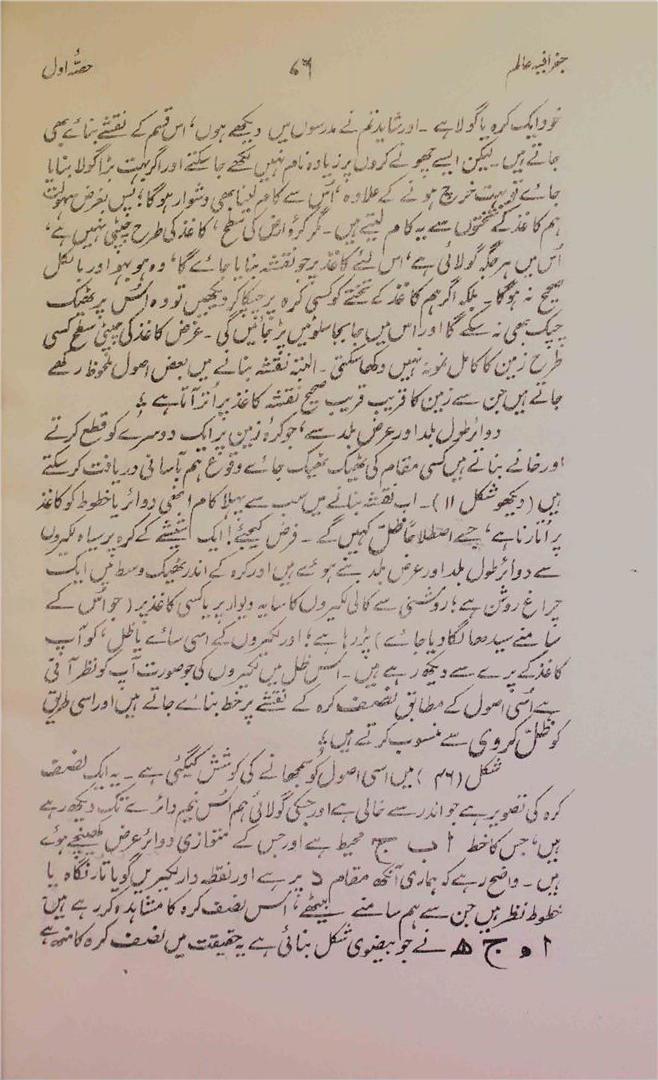 جغرافیہ عالم ۷۶ حصّہ اول
خود ایک کرہ یا گولا ہے ۔ اور شاید تم نے مدرسوں میں دیکھے ہوں، اس قسم کے نقشے بنائے بھی
جاتے ہیں۔ لیکن ایسے چھوٹے کروں پر زیادہ نام نہیں لکھے جا سکتے اور اگر بہت بڑا گولا بنایا
جائے تو بہت خرچ ہونے کے علاوہ، اُس سے کام لینا بھی دشوار ہوگا؛ پس بغرض سہولت
ہم کاغذ کے تختوں سے یہ کام لیتے ہیں۔ مگر کرۂ ارض کی سطح، کاغذ کی طرح چپٹی نہیں ہے،
اُس میں ہر جگہ گولائی ہے، اس لئے کاغذ پر جو نقشہ بنایا جائے گا، وہ ہو بہو اور بالکل
صحیح نہ ہوگا۔ بلکہ اگر ہم کاغذ کے تختے کو کسی کرہ پر چپکا کر دیکھیں تو وہ اُس پر ٹھیک
چپک بھی نہ سکے گا اور اس میں جا بجا سلوٹیں پڑ جائیں گی ۔ غرض کاغذ کی چپٹی سطح کسی
طرح زمین کا کامل نمونہ نہیں دکھا سکتی ۔ البتہ نقشہ بنانے میں بعض اصول ملحوظ رکھے
جاتے ہیں جن سے زمین کا قریب قریب صحیح نقشہ کاغذ پر اُتر آتا ہے ؛
دوائر طول بلد اور عرض بلد سے، جو کرۂ زمین پر ایک دوسرے کو قطع کرتے
اور خانے بناتے ہیں کسی مقام کی ٹھیک ٹھیک جائے وقوع ہم بآسانی دریافت کر سکتے
ہیں (دیکھو شکل ۱۱)۔ اب نقشہ بنانے میں سب سے پہلا کام انھی دوائر یا خطوط کو کاغذ
پر اُتارنا ہے، جسے اصطلاحاً ظلّ کہیں گے ۔ فرض کیجئے! ایک شیشے کے کرہ پر سیاہ لکیروں
سے دوائر طول بلد اور عرض بلد بنے ہوئے ہیں اور کرہ کے اندر ٹھیک وسط میں ایک
چراغ روشن ہے؛ روشنی سے کالی لکیروں کا سایہ دیوار پر یا کسی کاغذ پر (جو اس کے
سامنے سیدھا لگا دیا جائے) پڑ رہا ہے؛ اور لکیروں کے اسی سائے یا ظل، کو آپ
کاغذ کے پرے سے دیکھ رہے ہیں ۔ اس ظل میں لکیروں کی جو صورت آپ کو نظر آتی
ہے اُسی اصول کے مطابق نصف کرہ کے نقشے پر خط بنائے جاتے ہیں اور اسی طریق
کو ظلّ کروی سے منسوب کرتے ہیں ؛
شکل (۴۶) میں اسی اصول کو سمجھانے کی کوشش کیگئی ہے ۔ یہ ایک نصف
کرہ کی تصویر ہے جو اندر سے خالی ہے اور جسکی گولائی ہم اُس نیم دائرے تک دیکھ رہے
ہیں، جس کا خط ا ب ج محیط ہے اور جس کے متوازی دوائر عرض کھنچے ہوئے
ہیں ۔ واضح رہے کہ ہماری آنکھ مقام د پر ہے اور نقطہ دار لکیریں گویا تار نگاہ یا
خطوط نظر ہیں جن سے ہم سامنے بیٹھے، اس نصف کرہ کا مشاہدہ کر رہے ہیں
ا و ج ھ نے جو بیضوی شکل بنائی ہے یہ حقیقت میں نصف کرہ کا منہ ہے